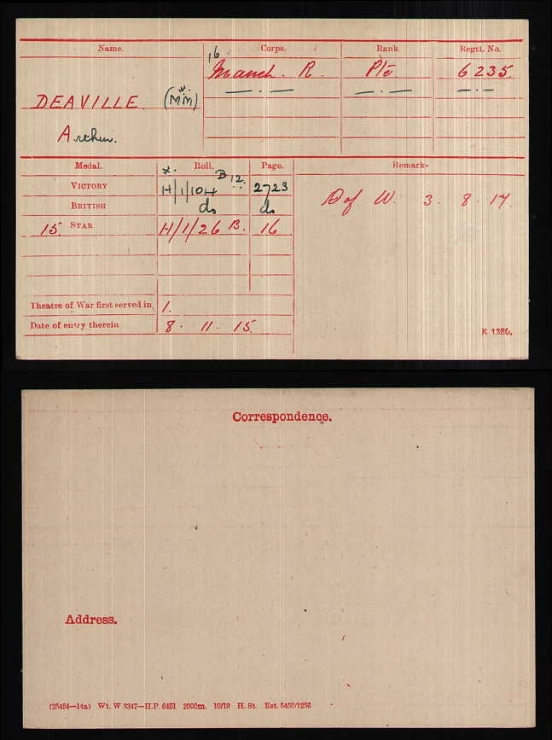 Name. Corps. Rank Regtl. No.
16
Manch. R. Pte 6235
DEAVILLE (MM)
Arthur.
Medal. Roll. Page. Remarks
VICTORY H/1/104 B12 2723
D of W. 3. 8. 17
BRITISH do do
15 STAR H/1/26 B. 16
Theatre of War first served in 1.
Date of entry therein 8. 11. 15
K 1380.
Correspondence.
Address.
(26454—14a) Wt. W 3347—H.P. 6451 2000m. 10/19 H. St. Est. 5450/1256